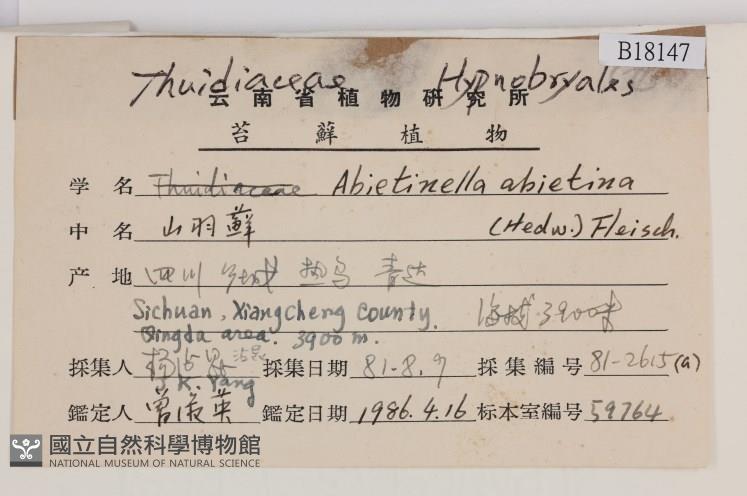 B18147
Thuidiaceae Hypnobryales
云南省植物研究所
苔蘚植物
学名 Thuidiaceae Abietinella abietina
中名 山羽蘚 (Hedw.) Fleisch.
产地 四川 乡城 热乌 青达
Sichuan, Xiangcheng County. 海拔.3900米
Qingda area. 3900 m.
採集人 杨 採集日期 81-8.9 採集編号 81-2615(a)
J.K. Yang
鑑定人 鑑定日期 1986.4.16 标本室編号 59764
國立自然科學博物館
NATIONAL MUSEUM OF NATURAL SCIENCE